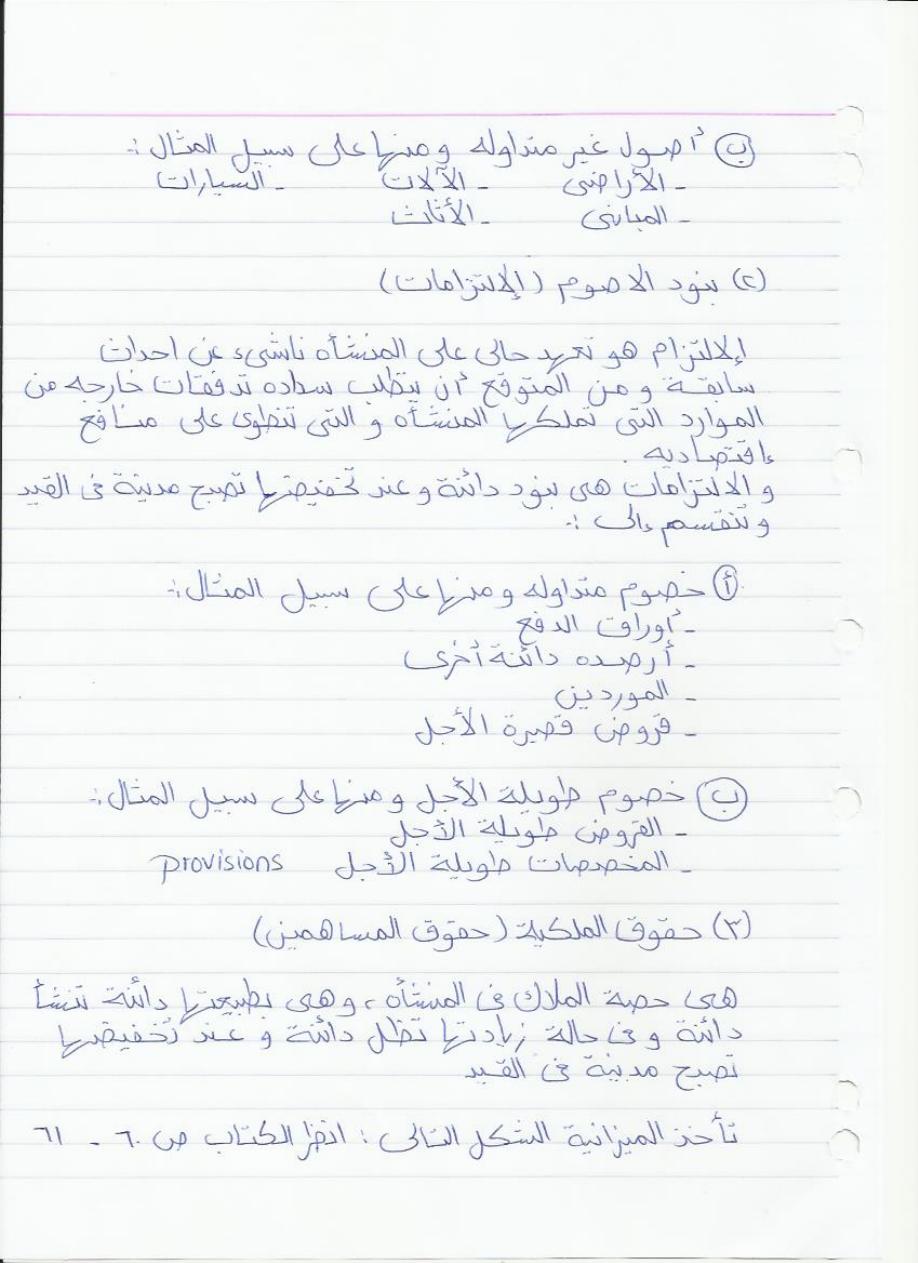 ب) أصول غير متداوله ومنها على سبيل المثال :-
- الأراضى - الآلات - السيارات
- المبانى - الأثاث
(٢) بنود الاصوم (الإلتزامات)
الإلتزام هو تعهد حالى على المنشأه ناشىء عن احداث
سابقة و من المتوقع أن يتطلب سداده تدفقات خارجه من
الموارد التى تملكها المنشأه و التى تنطوى على منافع
إقتصاديه .
و الالتزامات هى بنود دائنة و عند تخفيضها تصبح مدينة فى القيد
و تنقسم إلى :-
أ) خصوم متداوله ومنها على سبيل المثال :-
- أوراق الدفع
- أرصده دائنة أخرى
- الموردين
- قروض قصيرة الأجل
ب) خصوم طويلة الأجل ومنها على سبيل المثال :-
- القروض طويلة الأجل
- المخصصات طويلة الأجل provisions
(٣) حقوق الملكية (حقوق المساهمين)
هى حصة الملاك فى المنشأه ، وهى بطبيعتها دائنة تنشأ
دائنة و فى حالة زيادتها تظل دائنة و عند تخفيضها
تصبح مدينة فى القيد
تأخذ الميزانية الشكل التالى : انظر الكتاب ص ٦٠ - ٦١